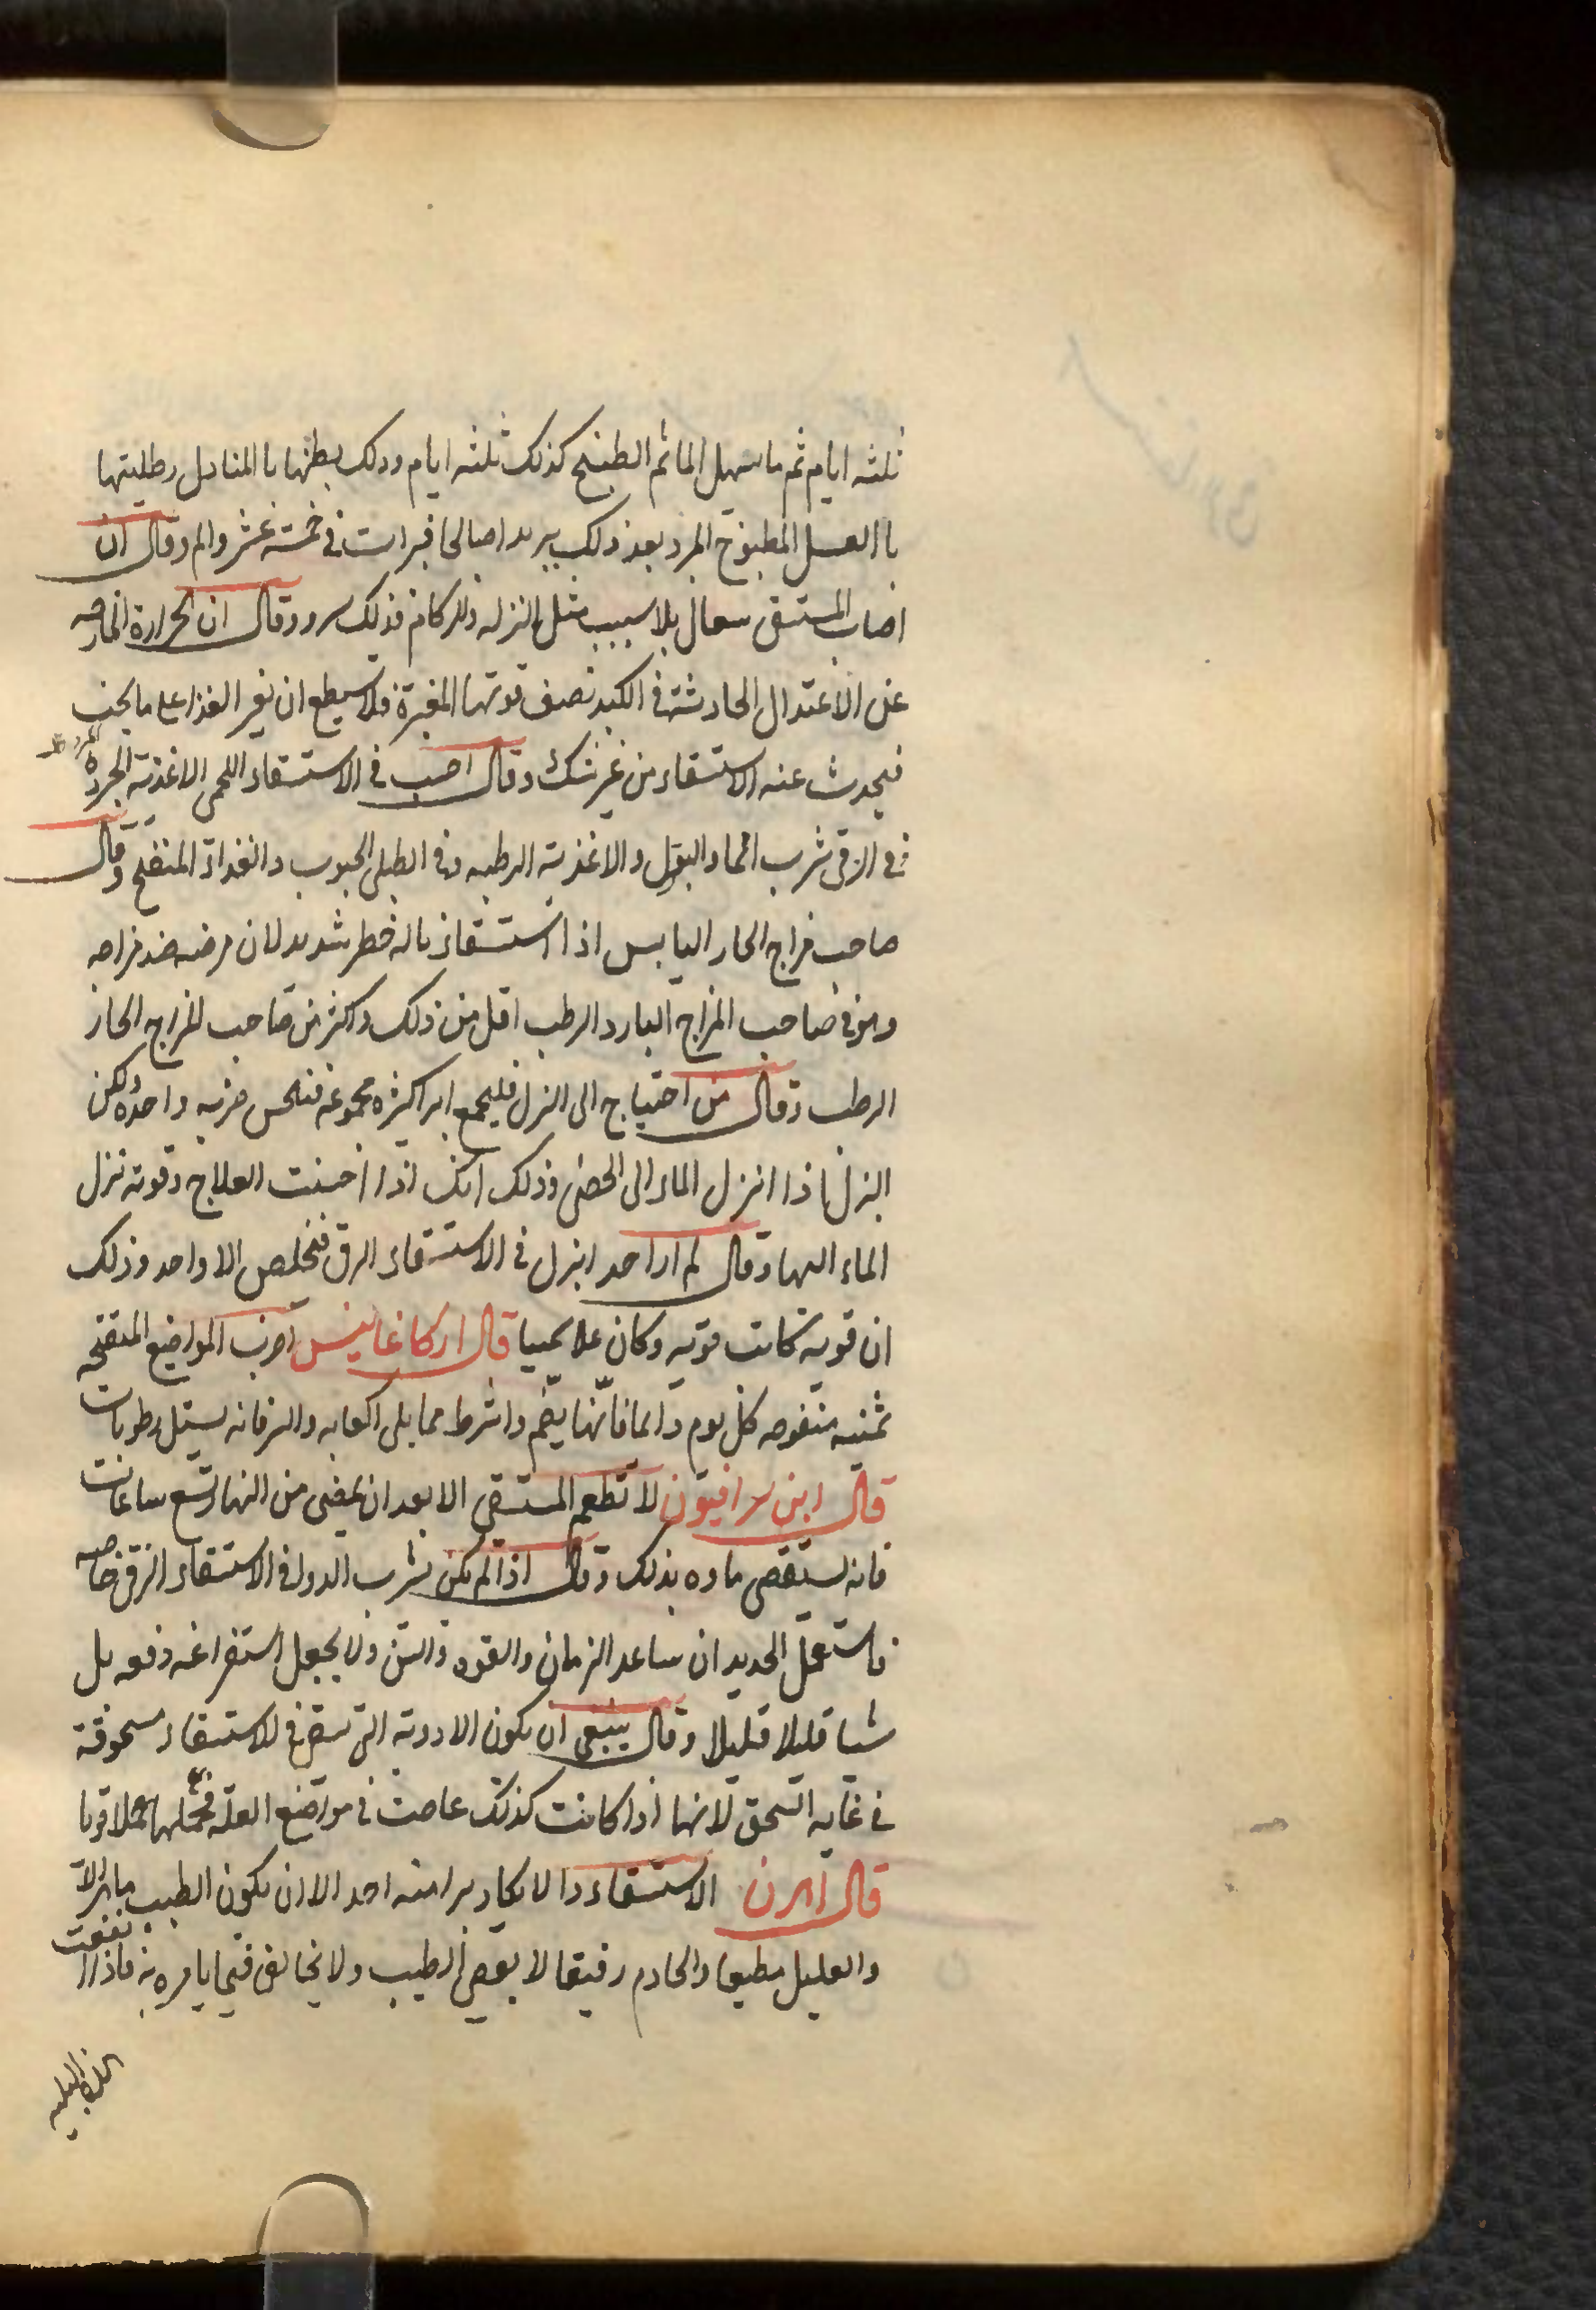 ثلثه ايام ثم ما يسهل الما ثم الطبيخ كذلك ثلثه ايام ودلك بطنها با المناديل وطليتها
با العسل المطبوخ المرد بعد ذلك ببريد اصالحا فبرات في خمسة عشر والم وقال ان
اصاب المستسقى سعال بلا سبب مثل النزله والزكام فذلك وقال ان الحرارة الخارجه
عن الاعتدال الحادثة في الكبد تضعف قوتها المغيرة فلا يستطيع ان تغير الغذا على ما يجب
فيحدث عنه الاستسقاء من غير شك وقال اجب في الاستسقاء اللحمى الاغذية
في الزقى شرب الماء والبقول والاغذية الرطبه وفي الطبلى الحبوب والغذاء المنفخ وقال
صاحب مزاج الحار اليابس اذا استسقا ناله خطر شديد لان مرضه ضد مزاجه
وهو في صاحب المزاج البارد الرطب اقل من ذلك واكثر من صاحب المزاج الحار
الرطب وقال من احتياج الى البزل فليجمع ابرا كثيره مجموعه فينخس ضربه واحده ولكن
البزل اذا انزل الماء الى الحصى وذلك انك اذا احسنت العلاج وقوته نزل
الماء اليها وقال لم ار احد ابزل في الاستسقاء الزقى فتخلص الا واحد وذلك
ان قوته كانت قويه وكان علا قال اركاغانيس اضرب المواضع المنتفخه
بمثانه منفوخه كل يوم دائما فانها يضم واشرط مما يلى الكعاب والزمانه يسيل رطوبات
قال ابن سرافيون لا تطعم المستسقى الا بعد ان يمضى من النهار تسع ساعات
فانه يستقصى ماده بذلك وقال اذا لم يكن شرب الدوا في الاستسقاء الزقى خاصه
فاستعمل الحديد ان ساعد الزمان والقوه والسن ولا يجعل استفراغه دفعه بل
شيا قليلا قليلا وقال ينبغى ان يكون الادوية التى تستفرغ الاستسقاء مسحوقة
في غايه السحق لانها اذا كانت كذلك غاصت في مواضع العله فحللها حملا قويا
قال اهرن الاستسقاء دا لا يكاد يبرا منه احد الا ان يكون الطبيب ماهرا
والعليل مطيعا والخادم رفيقا لا يعصى الطبيب ولا يخالف فيما يامره به فاذا اتفقت